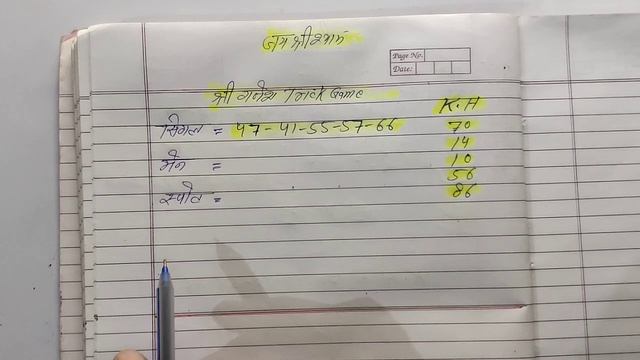 जय श्री श्याम
Page No.
Date:
श्री गणेश Trick Game
K.H
सिंगल = 47-41-55-57-66
70
14
मेन =
10
56
स्पोट =
86